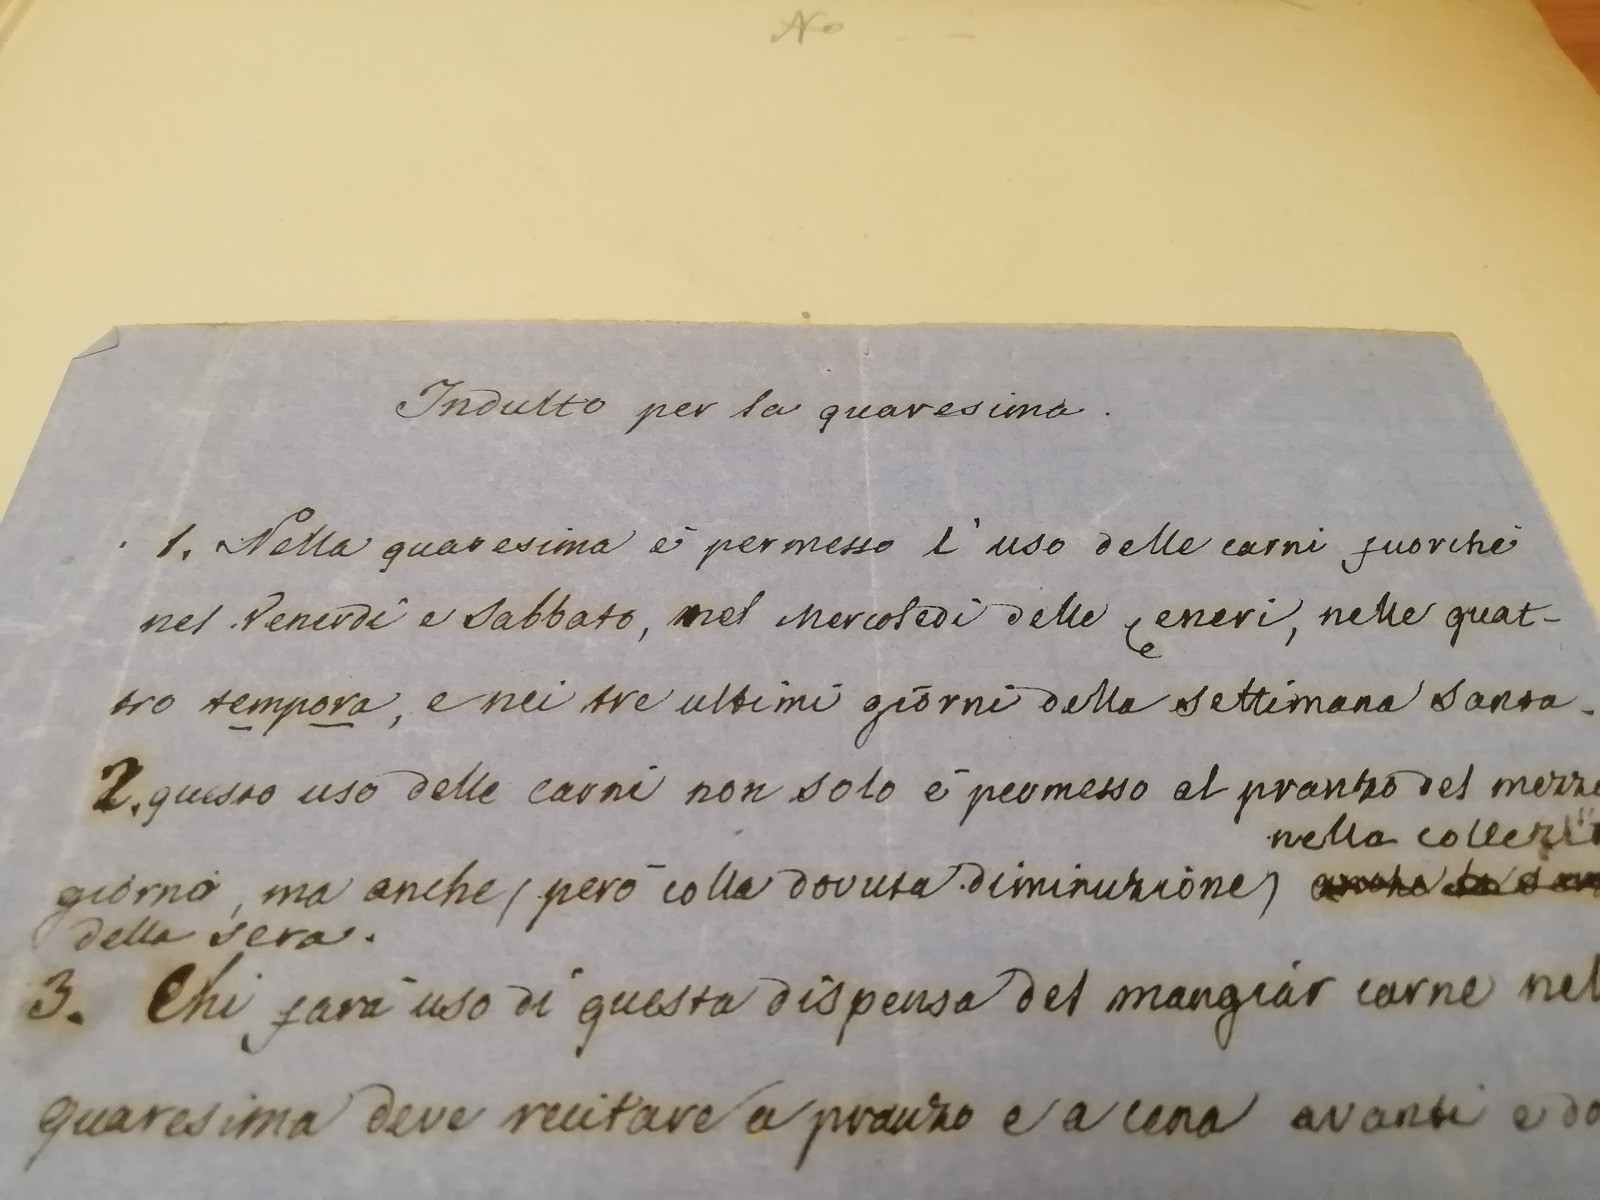 No
Indulto per la quaresima.
1. Nella quaresima è permesso l'uso delle carni fuorchè
nel Venerdì e Sabbato, nel Mercoledì delle Ceneri, nelle quat-
tro tempora, e nei tre ultimi giorni della settimana santa.
2. questo uso delle carni non solo è permesso al pranzo del mezzo
nella collezi
giorno, ma anche (però colla dovuta diminuzione)
della sera.
3. Chi farà uso di questa dispensa del mangiar carne nel
quaresima deve recitare a pranzo e a cena avanti e do